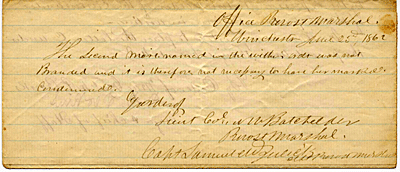 Office Provost Marshal.
Winchester June 25th 1862
The Second Mare named in the within order was not
Branded and it is therefore not necessary to have her
Condemned.
By order of
Lieut Col. N W Batchelder
Provost Marshal.
Capt Samuel